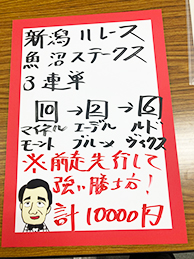 新潟11レース
魚沼ステークス
3連単
10→2→6
マイネル エーデル ルド
モーント ブルーン ヴィクス
※前走先行して
強い勝ち方!
計10000円